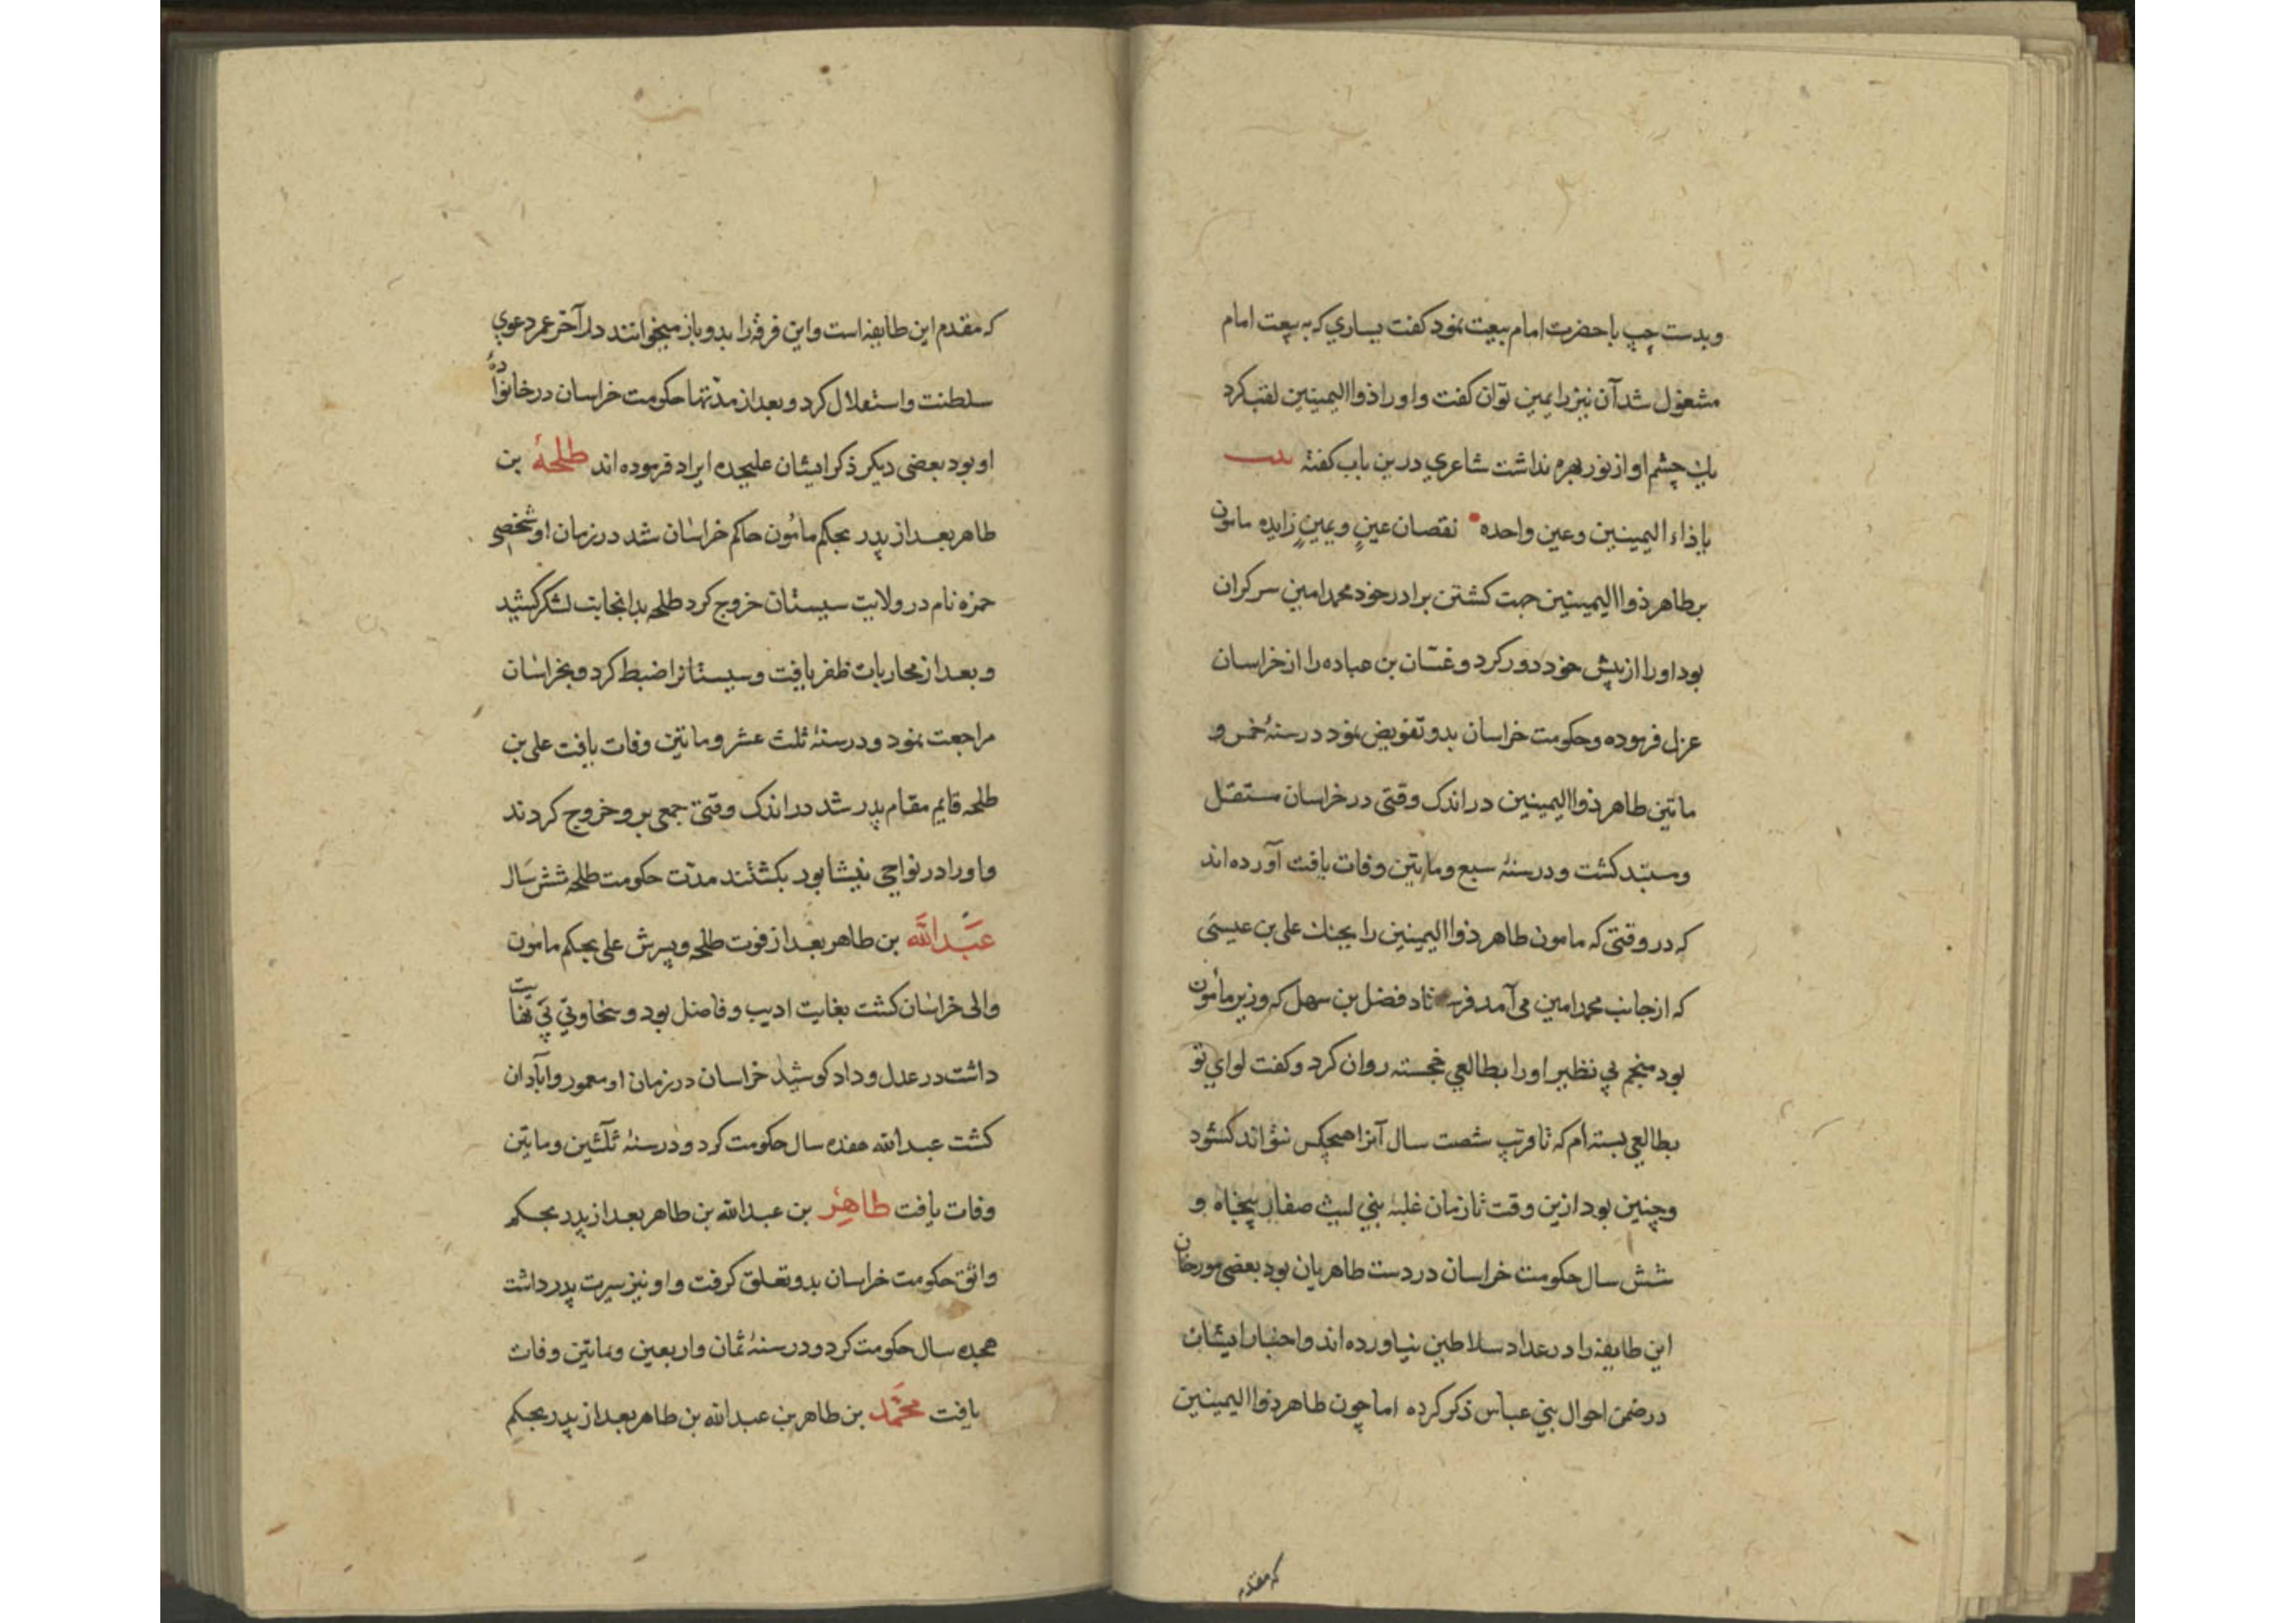 وبدست چپ با حضرت امام بیعت نمود کفت یساري که به بیعت امام
مشغول شد آن نیز را یمین توان کفت و او را ذو االیمینین لقب کرد
یك چشم او از نور بهره نداشت شاعري درین باب کفته بیت
یا ذاء الیمینین وعین واحده نقصان عینٍ ویمینٍ زایده مامون
بر طاهر ذو االیمینین جهت کشتن برادر خود محمد امین سر کران
بود او را از پیش خود دور کرد و غسّان بن عباده را از خراسان
عزل فرموده وحکومت خراسان بدو تفویض نمود در سنهٔ خمس و
ماتین طاهر ذو االیمینین در اندک وقتی در خراسان مستقل
ومستبد کشت و در سنهٔ سبع وماتین وفات یافت آورده اند
که در وقتی که مامون طاهر ذو االیمینین را بجنك علی بن عیسَی
که از جانب محمد امین می آمد فرستاد فضل بن سهل که وزیر مأمون
بود منجم بي نظیر او را بطالعي خجسته روان کرد وکفت لواي تو
بطالعي بسته ام که تا قرب شصت سال آنرا هیچکس نتواند کشود
وچنین بود ازین وقت تا زمان غلبهٔ بني لیث صفار پنجاه و
شش سال حکومت خراسان در دست طاهریان بود بعضی مورخان
این طایفه را در عداد سلاطین نیاورده اند واخبار ایشان
در ضمن احوال بني عباس ذکر کرده اما چون طاهر ذو االیمینین
که مقدم
که مقدم این طایفه است واین فرقه را بدو باز میخوانند در آخر عمر دعوي
سلطنت واستقلال کرد و بعد از مدتها حکومت خراسان در خانوادهٔ
او بود بعضی دیکر ذکر ایشان علیحده ایراد فرموده اند طلحهٔ بن
طاهر بعد از پدر بحکم مامُون حاکم خراسان شد در زمان او شخصی
حمزه نام در ولایت سیستان خروج کرد طلحه بدانجانب لشکر کشید
وبعد از محاربات ظفر یافت وسیستانرا ضبط کرد وبخراسان
مراجعت نمود و در سنهٔ ثلث عشر وماتین وفات یافت علی بن
طلحه قایم مقام پدر شد در اندک وقتی جمعی بر و خروج کردند
واو را در نواحي نیشابور بکشتند مدّت حکومت طلحه شش سَال
عَبْدالله بن طاهر بعد از فوت طلحه وپسرش علی بحکم مامون
والی خراسان کشت بغایت ادیب و فاضل بود و سخاوتي بي نهایت
داشت در عدل و داد کوشید خراسان در زمان او معمور وآبادان
کشت عبدالله هفده سال حکومت کرد و در سنهٔ ثلثین وماتین
وفات یافت طاهِر بن عبدالله بن طاهر بعد از پدر بحکم
واثق حکومت خراسان بدو تعلق کرفت و او نیز سیرت پدر داشت
هجده سال حکومت کرد و در سنهٔ ثمان واربعین وماتین وفات
یافت محَمّد بن طاهر بن عبدالله بن طاهر بعد از پدر بحکم